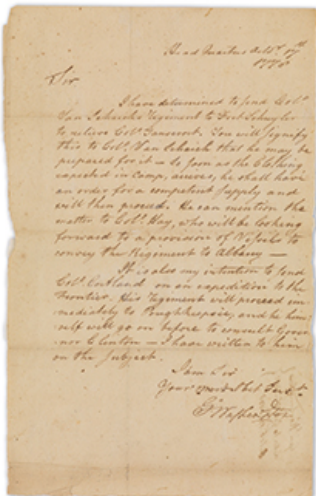 Head Quarters Octr. 17th
1778
Sir
I have determined to send Colo.
Van Schaicks Regiment to Fort Schuyler
to relieve Colo. Gansevort. You will signify
this to Colo. Van Schaick that he may be
prepared for it — So soon as the Cloathing
expected in Camp, arrives, he shall have
an order for a competent supply and
will then proceed. He can mention the
matter to Colo. Hay, who will be looking
forward to a provision of Vessels to
convey the Regiment to Albany —
It is also my intention to send
Colo. Cortland on an expedition to the
Frontier. His Regiment will proceed im-
mediately to Poughkeepsie, and he him-
self will go on before to consult Gover-
nor Clinton — I have written to him
on the subject.
I am Sir
Your most Obet Servt.
Go: Washington